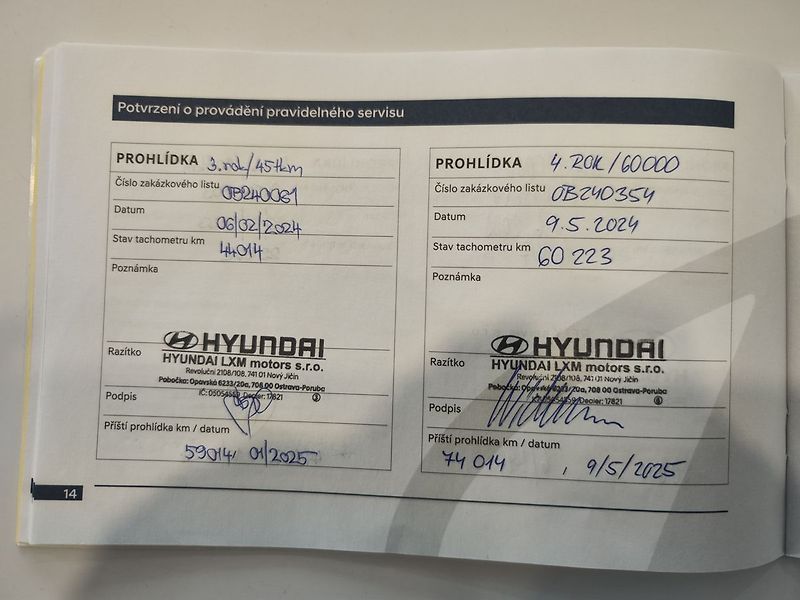 Potvrzení o provádění pravidelného servisu
PROHLÍDKA 3. rok/45tkm
Číslo zakázkového listu 0B240061
Datum 06/02/2024
Stav tachometru km 44014
Poznámka
Razítko HYUNDAI
HYUNDAI LXM motors s.r.o.
Revoluční 2108/108, 741 01 Nový Jičín
Pobočka: Opavská 6233/20a, 708 00 Ostrava-Poruba
IČ: 05054559, Dealer: 17821
Podpis
Příští prohlídka km / datum
59014, 01/2025
PROHLÍDKA 4. ROK/60000
Číslo zakázkového listu 0B240354
Datum 9.5.2024
Stav tachometru km 60 223
Poznámka
Razítko HYUNDAI
HYUNDAI LXM motors s.r.o.
Revoluční 2108/108, 741 01 Nový Jičín
Pobočka: Opavská 6233/20a, 708 00 Ostrava-Poruba
Dealer: 17821
Podpis
Příští prohlídka km / datum
74 014 , 9/5/2025
14